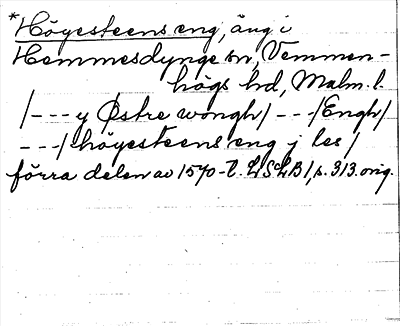 *Höyesteens eng, äng i
Hemmesdynge sn, Vemmen-
högs hd, Malm. l.
/--- y Østre wongh/ ---/Engh/
---/ höyesteens eng j les /
förra delen av 1570-t. LSLB 1, s. 313. orig.